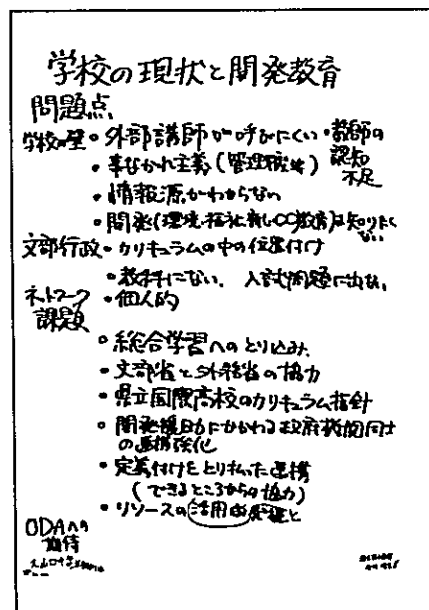 学校の現状と開発教育
問題点
学校の壁・外部講師が呼びにくい・教師の認知不足
・事なかれ主義(管理職等)
・情報源がわからない
・開発(環境・福祉・新しい○○教育)は知りたくない
文部行政・カリキュラムの中の位置付け
・教科にない、入試問題に出ない
ネットワーク・個人的
課題
・総合学習へのとり込み
・文部省と外務省の協力
・県立国際高校のカリキュラム指針
・開発援助にかかわる政府機関同士の連携強化
・定義付けをとり払った連携
(できるところからの協力)
・リソースの活用
ODAへの
期待